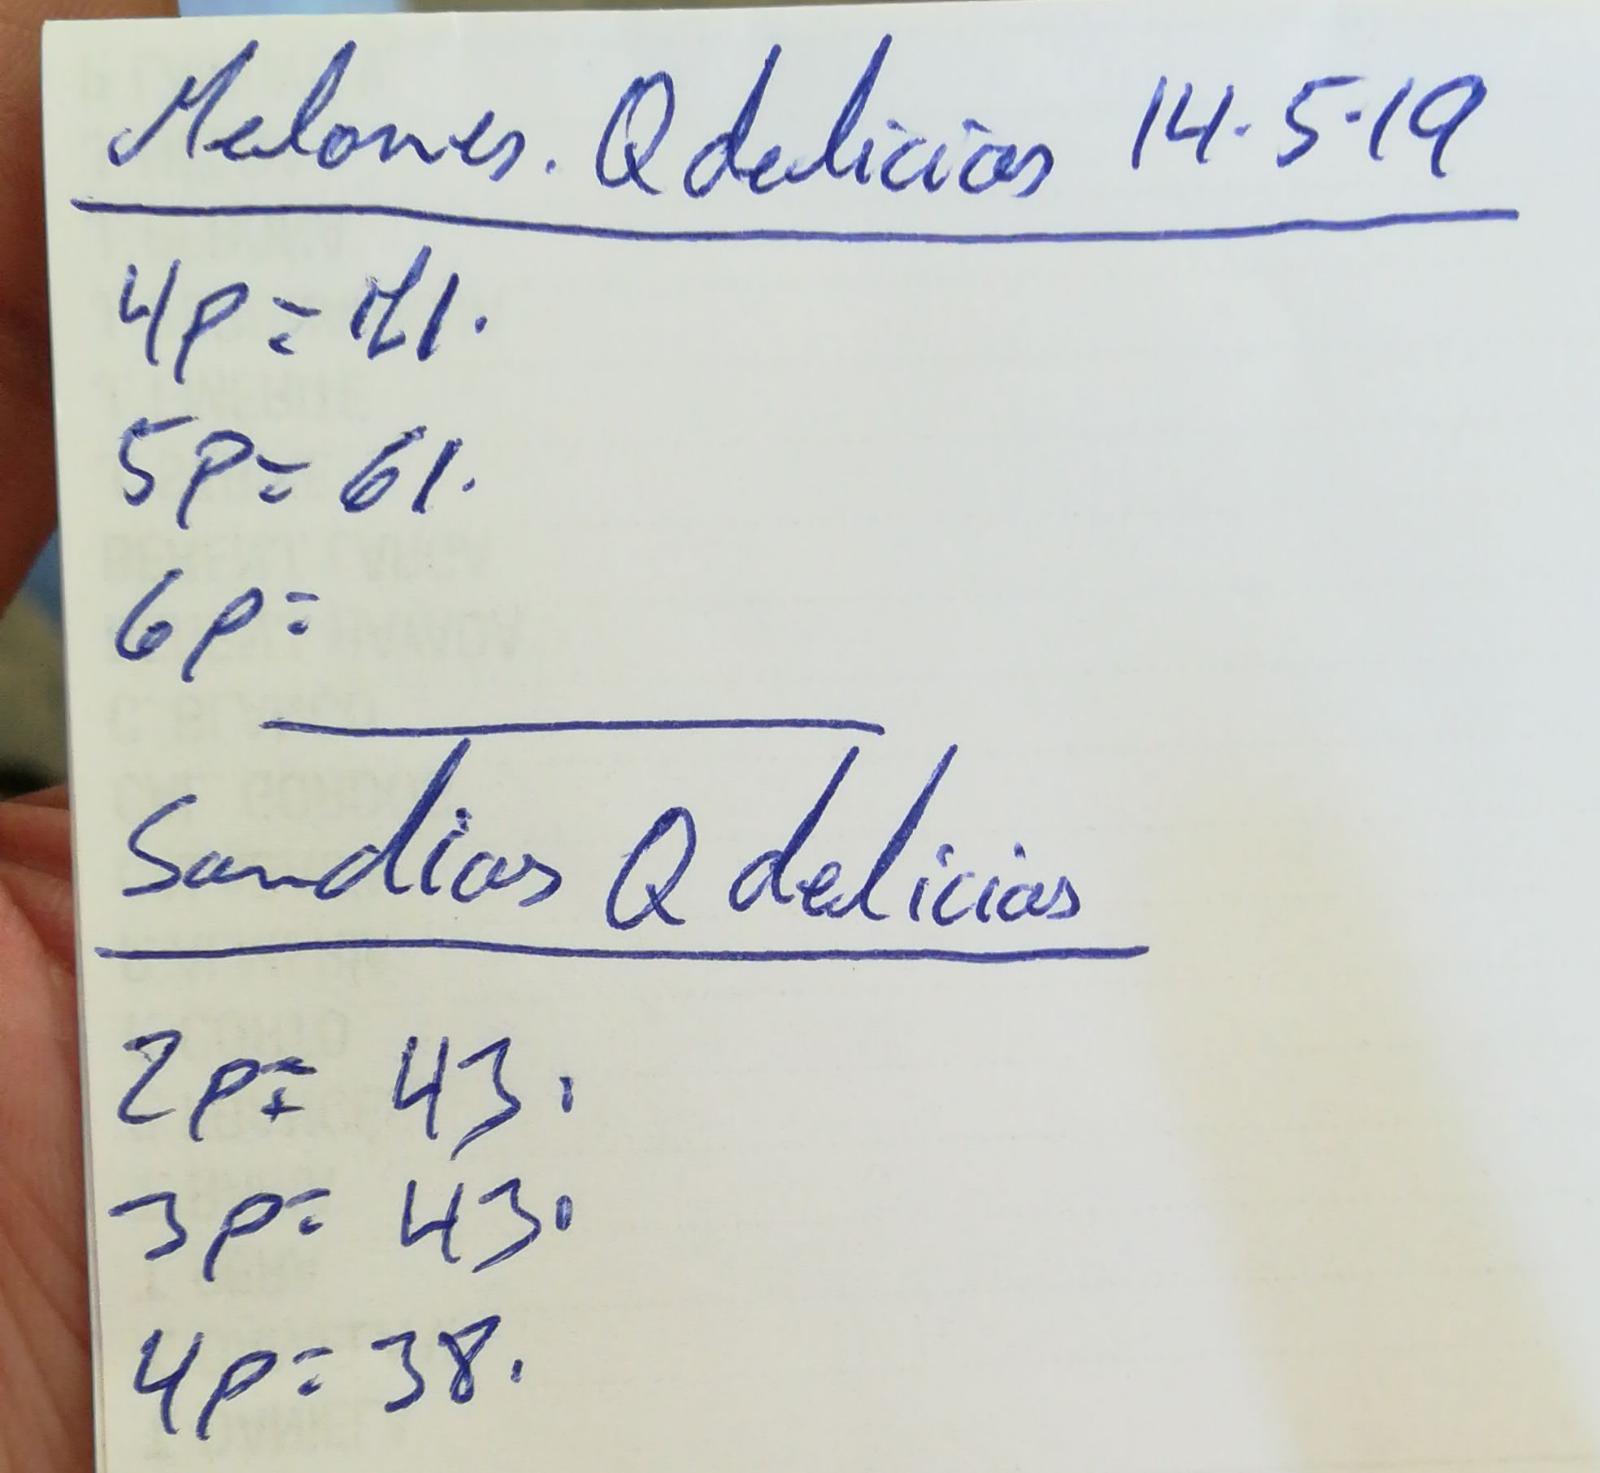 Melones. Q delicias 14.5.19
4p=
5p= 61.
6p=
Sandias Q delicias
2p= 43.
3p= 43.
4p= 38.